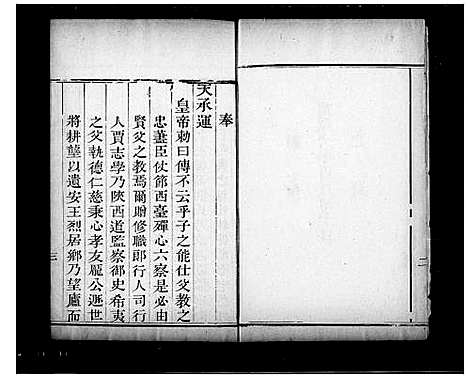 奉
天承運
皇帝勅曰傳不云乎子之能仕父教之
忠藎臣仗節西臺殫心六察是必由
賢父之教焉爾贈修職郎行人司行
人賈志學乃陝西道監察御史希夷
之父執德仁慈秉心孝友龐公遯世
將耕壟以遺安王烈居鄉乃望廬而
三
二